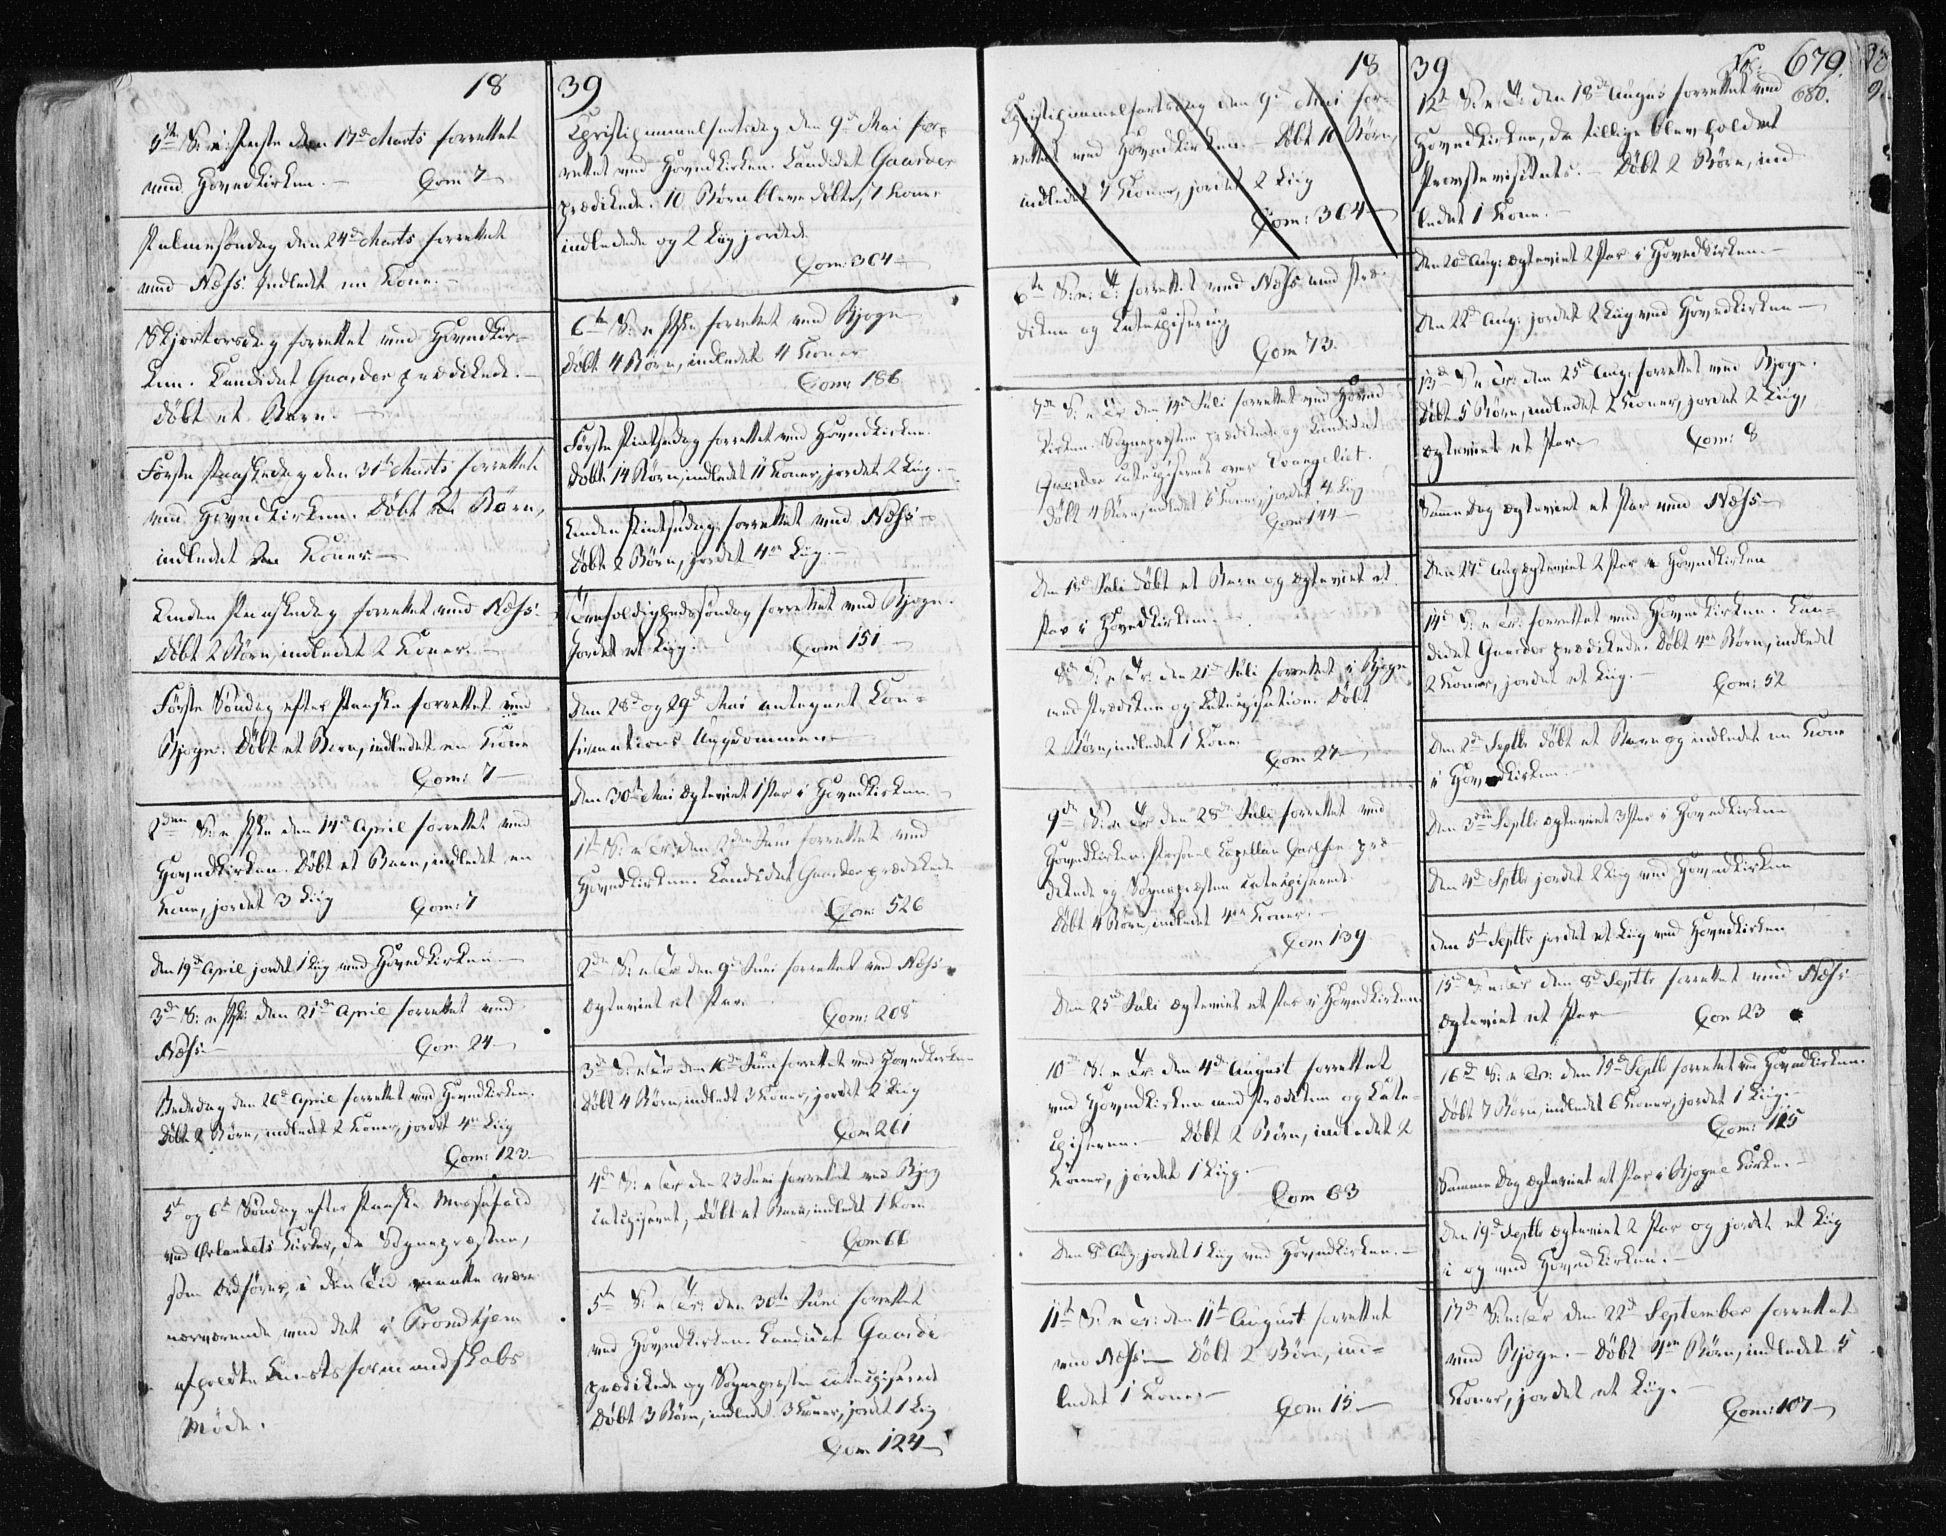 18
5te S: i Faste den 17de Marts forrettet
ved Hovedkirken. — Com 7
Palmesöndag den 24de Marts forrettet
ved Næss: Indledt en Kone. —
Skjertorsdag forrettet ved Hovedkir-
ken. Candidat Gaarder prædikede. —
Döbt et Barn. —
Förste Paaskedag den 31te Marts forrettet
ved Hovedkirken. Döbt Börn,
indledet Koner. —
Anden Paaskedag forrettet ved Næss:
Döbt 2 Börn, indledet 2 Koner. —
Förste Söndag efter Paaske forrettet ved
Bjogn. Döbt et Barn, indledet en Kone
Com: 7 —
2den S: e Pske den 14de April forrettet ved
Hovedkirken. Döbt et Barn, indledet en
Kone, jordet 3 Liig Com: 7
Den 19de April jordet 1 Liig ved Hovedkirken —
3de S: e Psk: den 21de April forrettet ved
Næss — Com 24 —
Bededag den 26de April forrettet ved Hovedkirken.
Döbt 2 Börn, indledet 2 Koner, jordet 4re Liig
Com: 123 —
5te og 6te Söndag efter Paaske Messefald
ved Ørlandets Kirker, da Sognepræsten,
som Ordförer, i den Tid maatte være
nærværende ved det i Trondhjem
afholdte Amtsformandskabs
Möde.
39
Christihimmelfartsdag den 9de Mai for-
rettet ved Hovedkirken. Candidat Gaarder
prædikede. 10 Börn bleve döbte, 7 Koner
indledede og 2 Liig jordede
Com: 304 —
6te S: e Pske forrettet ved Bjogn
Döbt 4 Börn, indledet 4 Koner
Com: 186
Förste Pintsedag forrettet ved Hovedkirken.
Döbt 14 Börn, indledet 11 Koner, jordet 2 Liig. —
Anden Pintsedag forrettet ved Næss —
Döbt 2 Börn, jordet 4re Liig. —
Trefoldighedssöndag forrettet ved Bjogn.
Jordet et Liig. — Com 151 —
Den 28de og 29de Mai antegnet Con-
firmations Ungdommen —
Den 30te Mai Egteviet 1 Par i Hovedkirken
1te S: e Tr: den 2den Juni forrettet ved
Hovedkirken. Candidat Gaarder prædikede
Com: 526
2den S: e Tr den 9de Juni forrettet ved Næss
Egteviet et Par. Com: 208
3de S: e Tr den 16de Juni forrettet ved Hovedkirken
Döbt 4 Börn, indledt 3 Koner, jordet 2 Liig
Com 261
4de S: e Tr den 23 Juni forrettet ved Bjogn
Catechiseret, Döbt et Barn, indledt 1 Kone
Com 66
5te S: e Tr: den 30te Juni forrettet
ved Hovedkirken. Candidat Gaarder
prædikede og Sognepræsten catechiserede
Döbt 3 Börn, indledt 3 Koner, jordet 1 Liig
Com 124 —
18
Christihimmelfartsdag den 9de Mai for-
rettet ved Hovedkirken. — Döbt 10 Börn,
indledet 7 Koner, jordet 2 Liig
Com: 304 —
6te S: e: T: forrettet ved Næss med Præ-
diken og Catechisering
Com 73.
7de S: e Tr den 14de Juli forrettet ved Hoved
Kirken. Sognepræsten prædikede og Candidat
Gaarder Catechiserede over Evangeliet.
Döbt 4 Börn, indledet 6 Koner, jordet 4 Liig
Com 144 —
Den 18de Juli Döbt et Barn og Egteviet et
Par i Hovedkirken.
8de S: e Tr: den 21de Juli forrettet i Bjogn
med Prædiken og Catechisation. Döbt
2 Börn, indledet 1 Kone.
Com 27 —
9de S: e Tr den 28de Juli forrettet ved
Hovedkirken. Personel Capellan Carlsen præ-
dikede og Sognepræsten catechiserede.
Döbt 4 Börn, indledet 4re Koner. —
Com 139
Den 25de Juli Egteviet et Par i Hovedkirken
10de S: e Tr: den 4de August forrettet
ved Hovedkirken med Prædiken og Cate-
chiseren. — Döbt 2 Börn, indledet 2
Koner, jordet 1 Liig. —
Com 63
Den 8de Aug: jordet 1 Liig ved Hovedkirken. —
11te S: e Tr: den 11te August forrettet
ved Næss — Döbt 2 Börn, ind-
ledet 1 Kone. —
Com 15 —
39 679.
680.
12te S: e T: den 18de August forrettet ved
Hovedkirken, da tillige blev holdet
Provstevisitats. — Döbt 2 Börn, ind
ledet 1 Kone. —
Den 20de Aug: Egteviet 2 Par i Hovedkirken —
Den 22de Aug: jordet 2 Liig ved Hovedkirken —
13de S e Tr: den 25de Aug: forrettet ved Bjogn.
Döbt 5 Börn, indledet 2 Koner, jordet 2 Liig,
Egteviet et Par. Com: 8
Samme Dag Egteviet et Par ved Næss —
Den 27de Aug Egteviet 2 Par i Hovedkirken
14de S: e Tr: forrettet ved Hovedkirken. Can-
didat Gaarder prædikede. Döbt 4re Börn, indledet
2 Koner, jordet et Liig. — Com: 52
Den 2de Septbr Döbt et Barn og indledet en Kone
i Hovedkirken.
Den 3die Septbr Egteviet 3 Par i Hovedkirken
Den 4de Sptbr jordet 2 Liig ved Hovedkirken
Den 5te Septbr jordet et Liig ved Hovedkirken
15de S: e: Tr den 8de Septbr forrettet ved Næss
Egteviet et Par — Com 23
16de S: e Tr: den 15de Septbr forrettet ved Hovedkirken.
Döbt 7 Börn, indledt 6 Koner, jordet 1 Liig. —
Com: 125
Samme Dag Egteviet et Par i Bjogns Kirke. —
Den 19de Septbr Egteviet 2 Par og jordet et Liig
i og ved Hovedkirken. —
17de S: e: Tr den 22de September forrettet
ved Bjogn. — Döbt 4re Börn, indledet 5
Koner, jordet et Liig. —
Com: 107 —